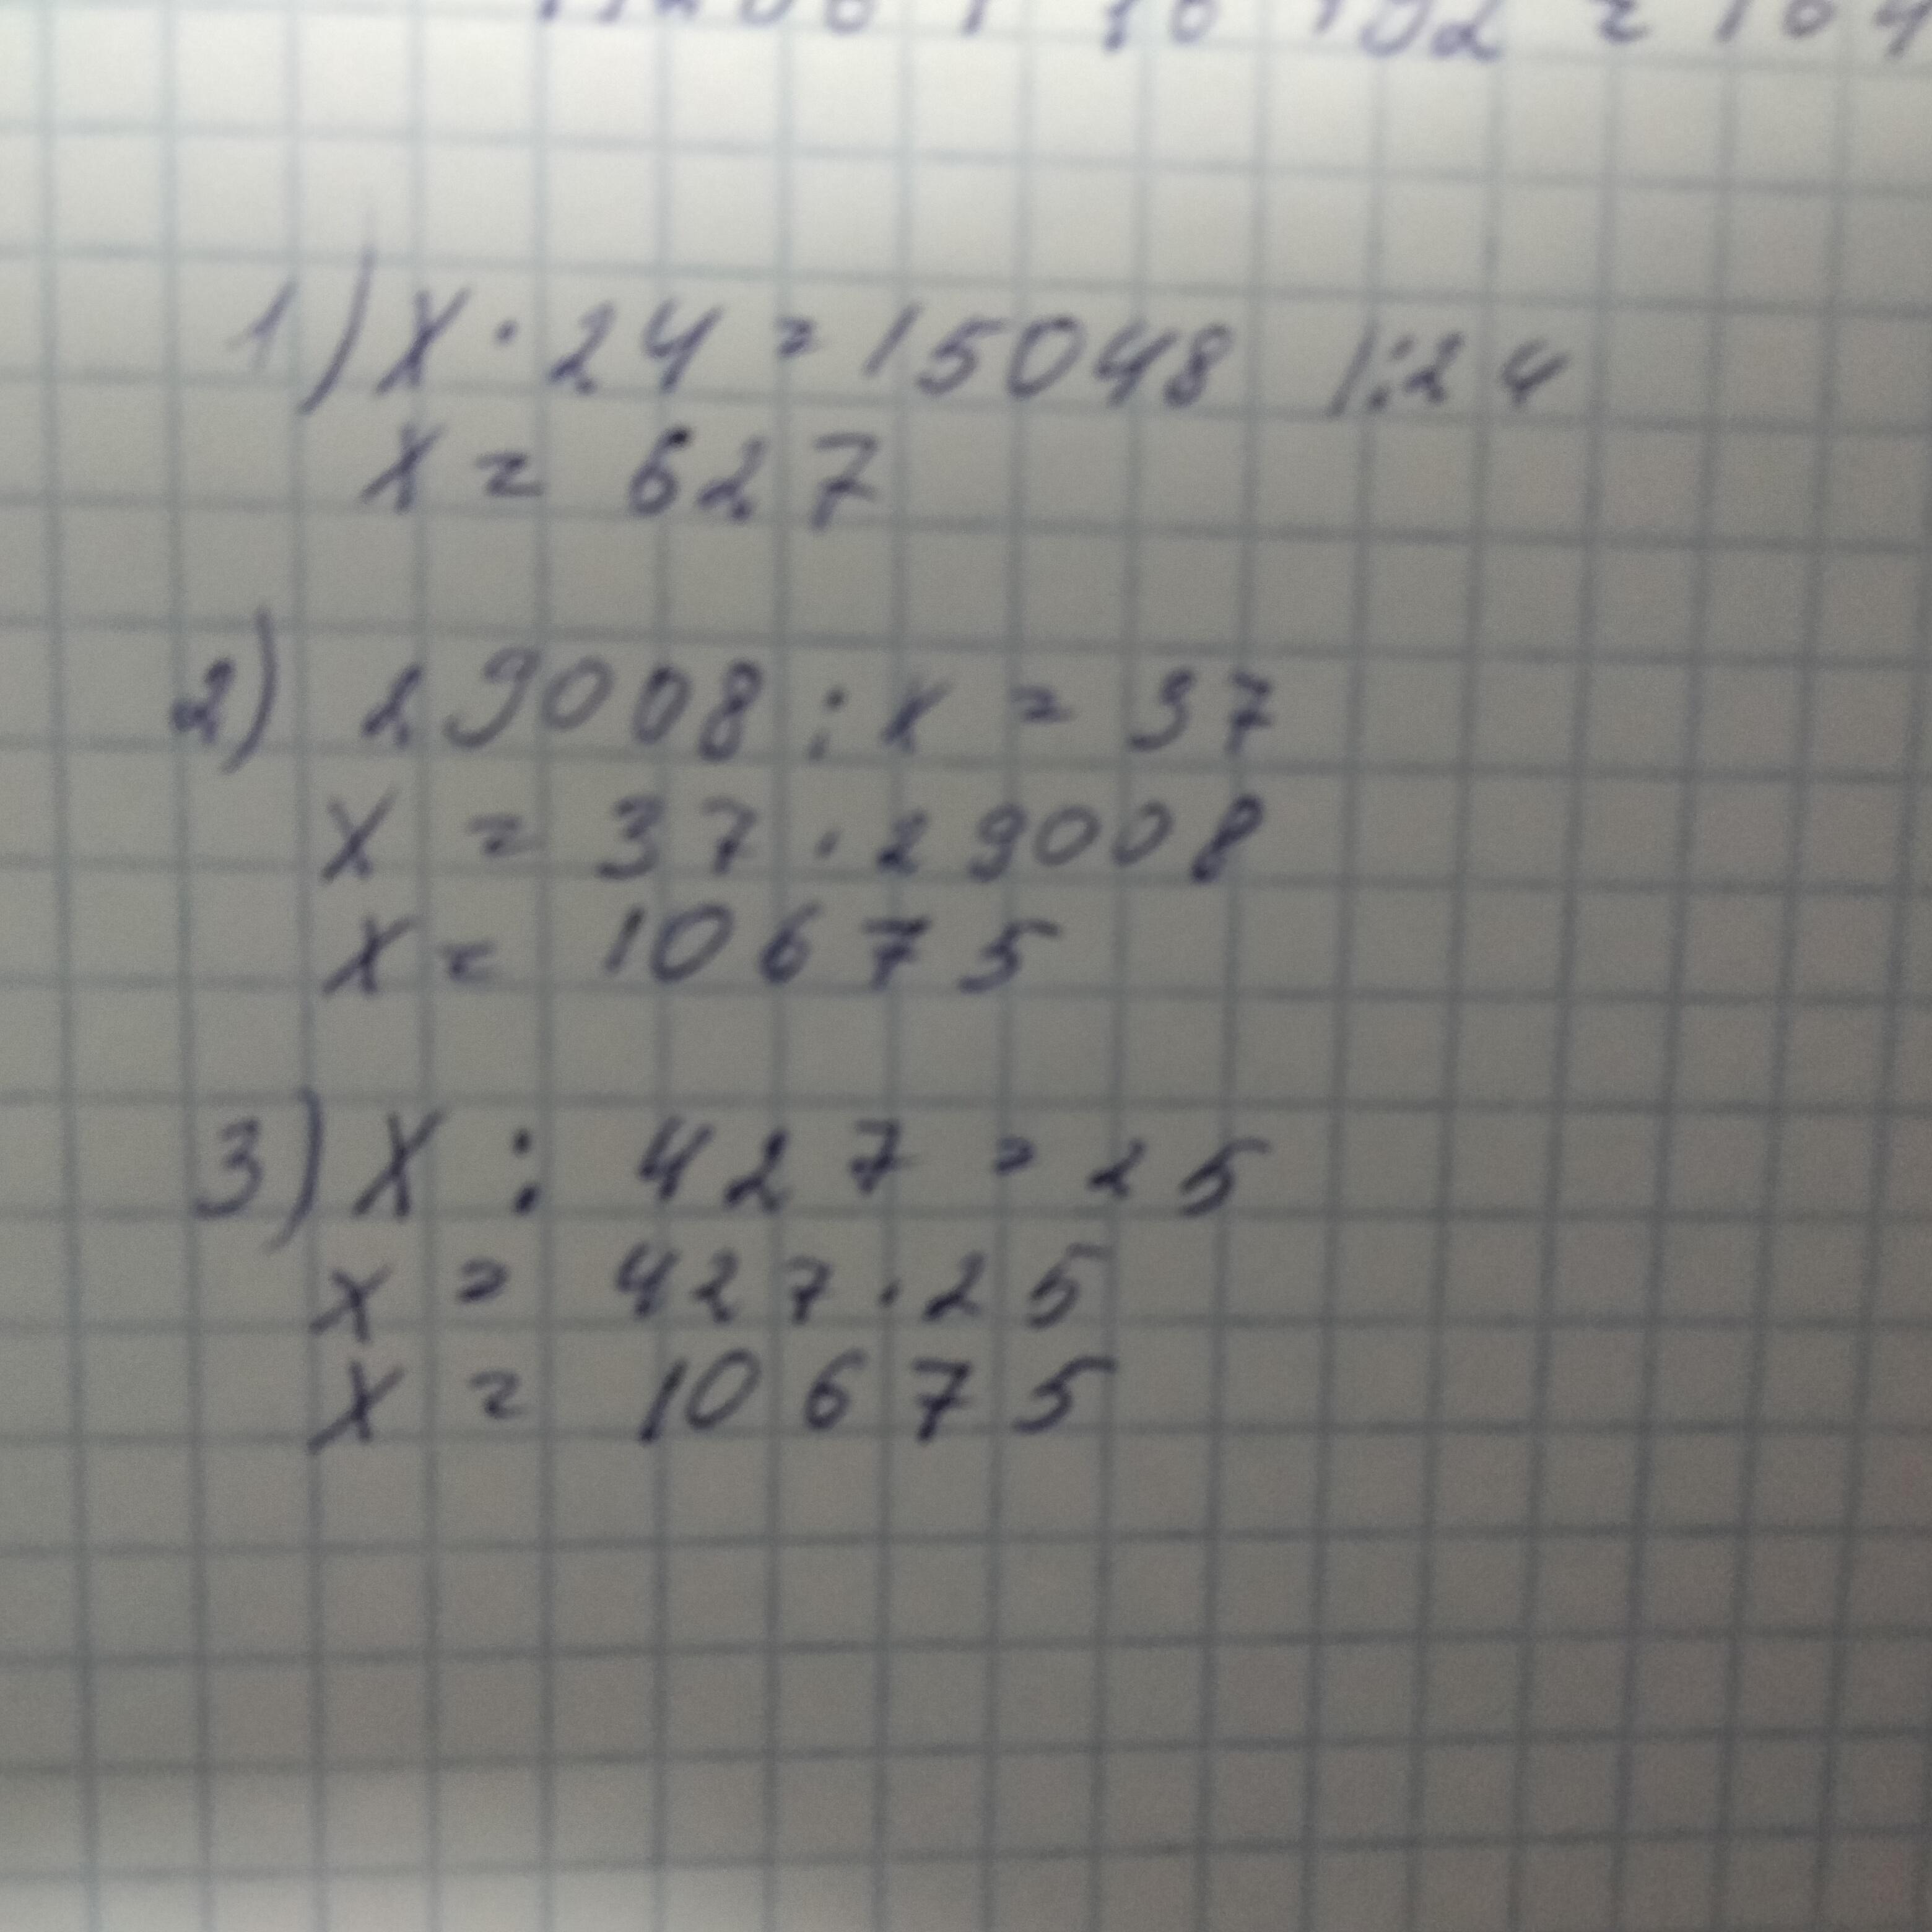 1) x · 24 = 15048 |:24
x = 627
2) 29008 : x = 37
x = 37 · 29008
x = 10675
3) x : 427 = 25
x = 427 · 25
x = 10675